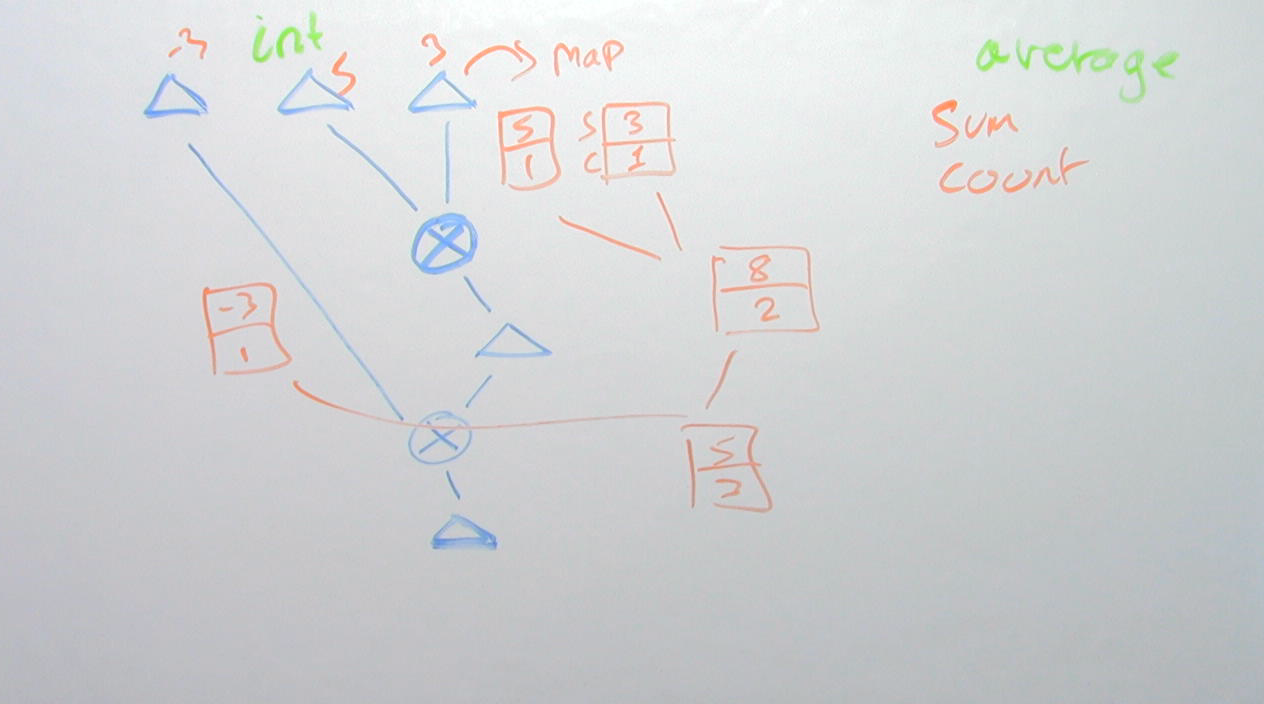 -3 int 5 3 map
average
sum
count
5
1
S 3
C 1
8
2
-3
1
5